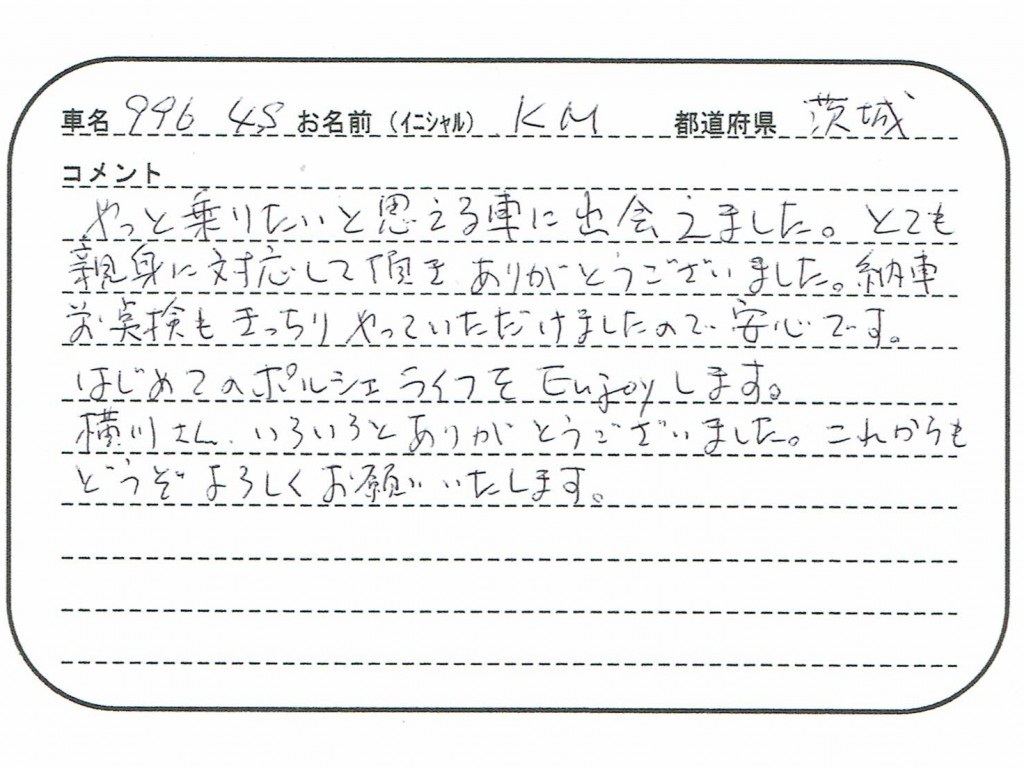 車名 996 4S お名前（イニシャル） KM 都道府県 茨城
コメント
やっと乗りたいと思える車に出会えました。とても
親身に対応して頂きありがとうございました。納車
前点検もきっちりやっていただけましたので安心です。
はじめてのポルシェライフをEnjoyします。
横川さん、いろいろとありがとうございました。これからも
どうぞよろしくお願いいたします。